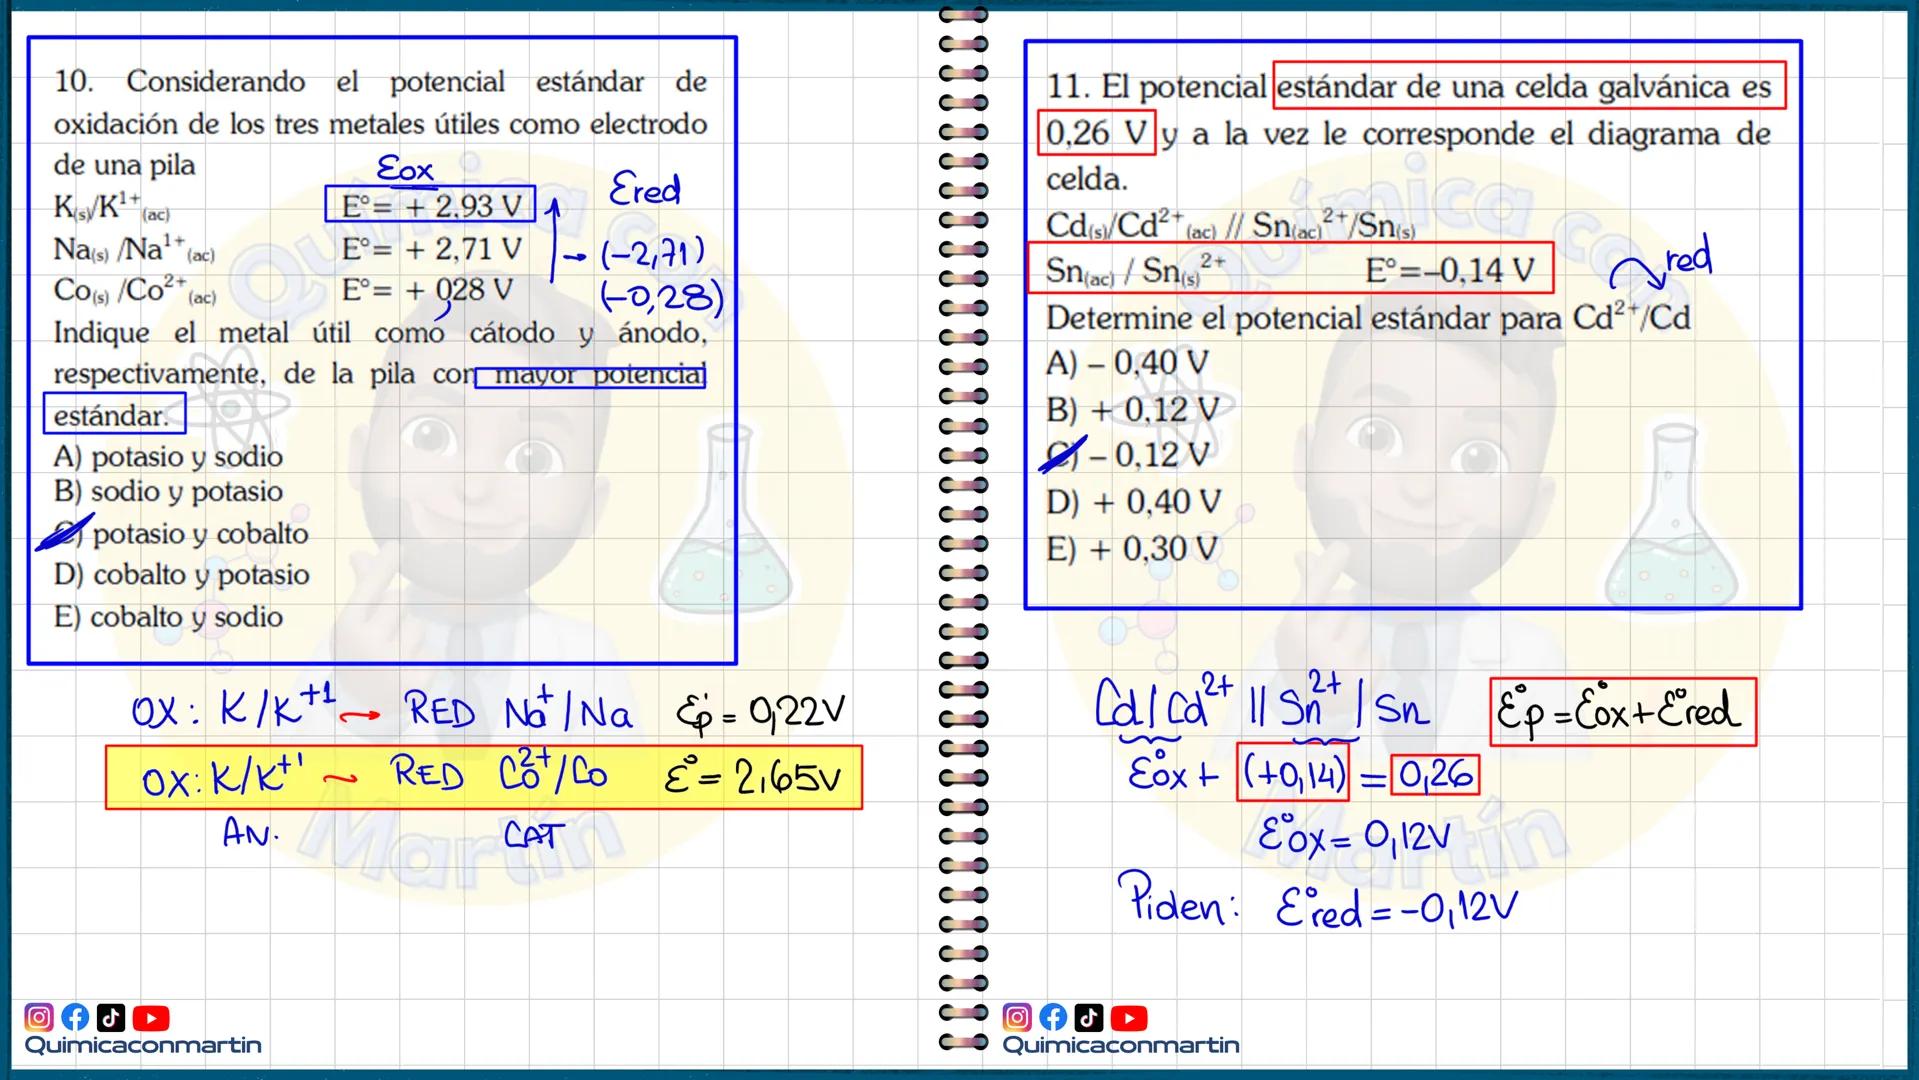 10. Considerando el potencial estándar de
oxidación de los tres metales útiles como electrodo
de una pila
Eox
Ered
K(s)/K¹⁺(ac) E°= + 2,93 V
Na(s) /Na¹⁺(ac) E°= + 2,71 V → (-2,71)
Co(s) /Co²⁺(ac) E°= + 0,28 V (-0,28)
Indique el metal útil como cátodo y ánodo,
respectivamente, de la pila con mayor potencial
estándar.
A) potasio y sodio
B) sodio y potasio
C) potasio y cobalto
D) cobalto y potasio
E) cobalto y sodio
OX: K/K⁺¹ → RED Na⁺/Na Ɛ°p = 0,22V
OX: K/K⁺¹ ~ RED Co²⁺/Co Ɛ° = 2,65V
AN. CAT
Química con
Martín
Quimicaconmartin
11. El potencial estándar de una celda galvánica es
0,26 V y a la vez le corresponde el diagrama de
celda.
Cd(s)/Cd²⁺(ac) // Sn(ac)²⁺/Sn(s)
Sn(ac) / Sn(s)²⁺ E°=–0,14 V
red
Determine el potencial estándar para Cd²⁺/Cd
A) – 0,40 V
B) + 0,12 V
C) – 0,12 V
D) + 0,40 V
E) + 0,30 V
Cd/Cd²⁺ // Sn²⁺ / Sn
Ɛ°p = Ɛ°ox + Ɛ°red
Ɛ°ox + (+0,14) = 0,26
Ɛ°ox = 0,12V
Piden: Ɛ°red = -0,12V
Química con
Martín
Quimicaconmartin